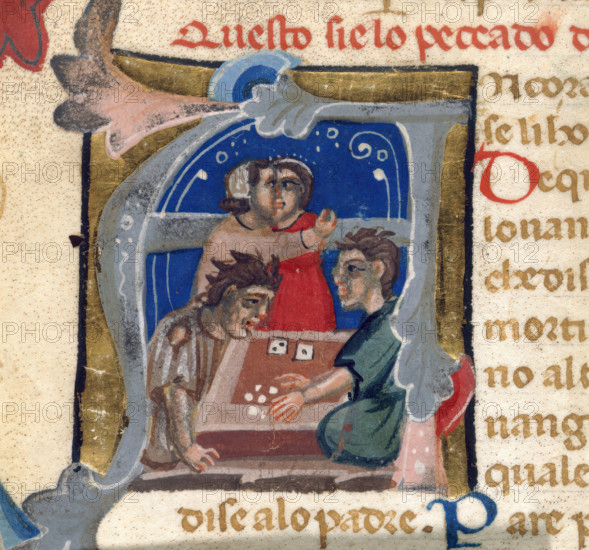 Questo sie lo peccado d
A
ncora
se li ho
Dequ
lo nan
che dis
morti
no alt
nang
quale
dise a lo padre. Pare p